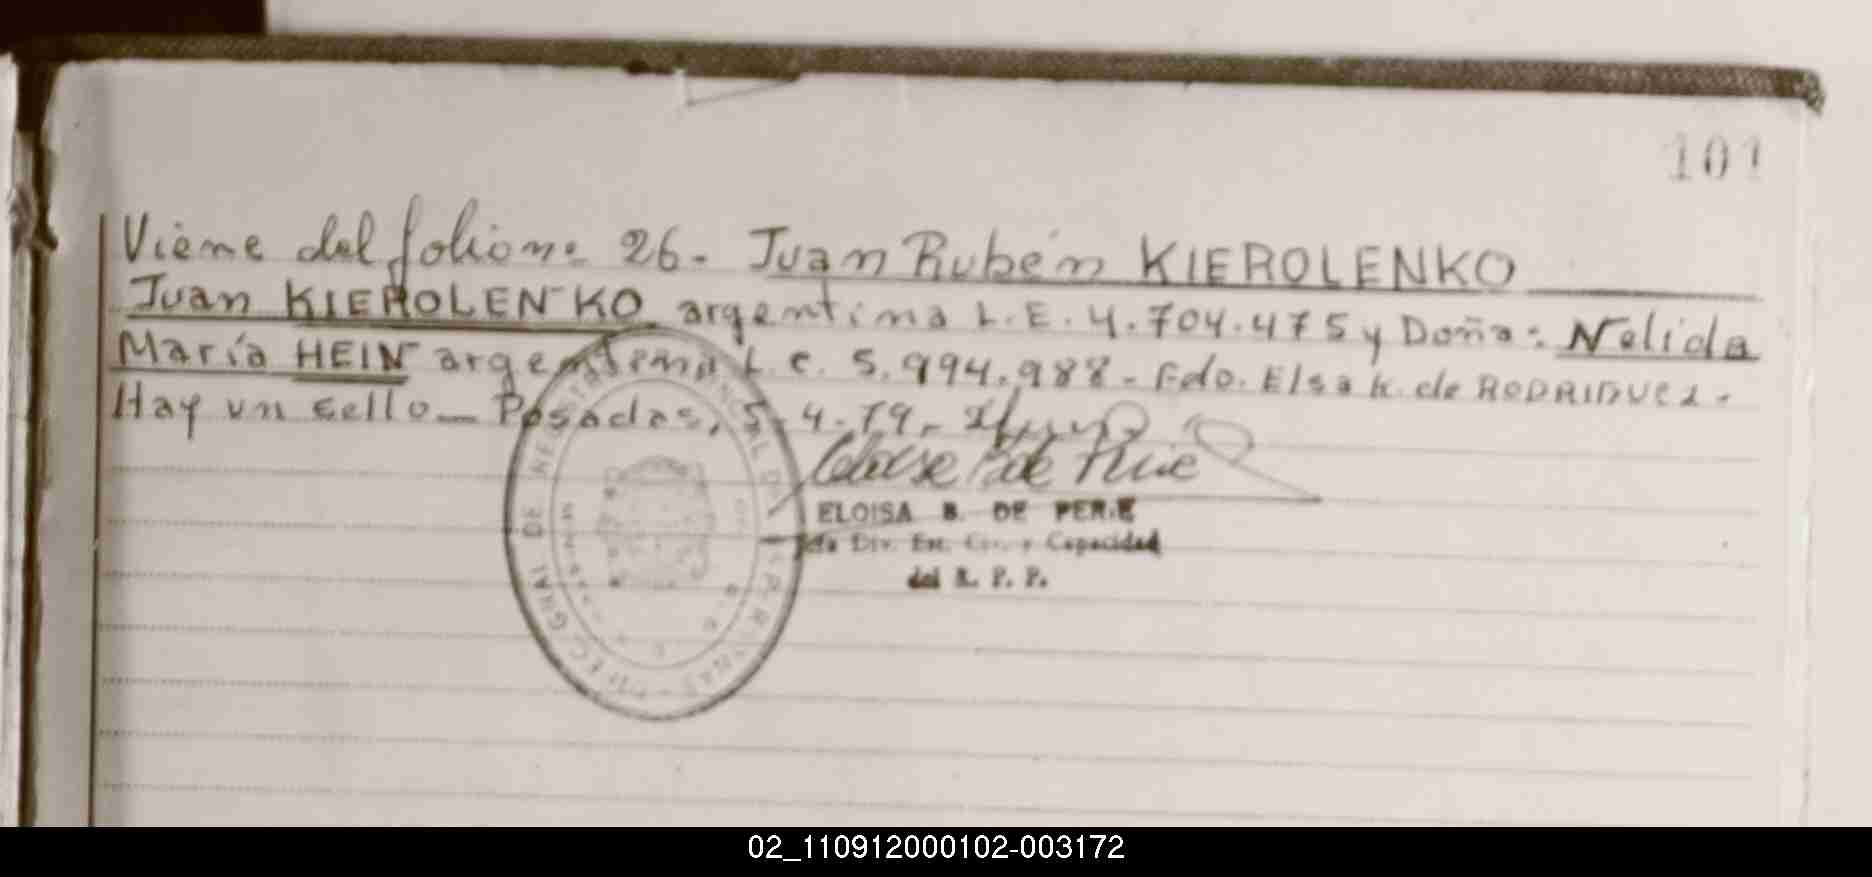 101
Viene del folio nº 26. Juan Rubén KIEROLENKO
Juan KIEROLENKO argentino L.E. 4.704.475 y Doña: Nelida
María HEIN argentina L.C. 5.994.988 - Fdo. Elsa K. de RODRIGUEZ.
Hay un sello - Posadas, 5-4-79.
ELOISA B. DE
Div. Est. y Capacidad
del R. P. P.
02_110912000102-003172